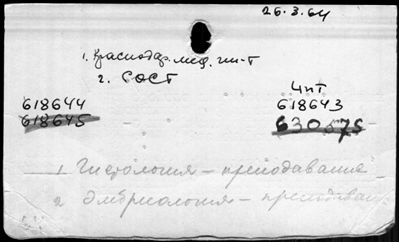 26.3.64
1. Краснодар. мед. ин-т
2. СОСТ
618644
618645
Чит
618643
630575
1 Гистология – преподавание
2 Эмбриология – преподаван